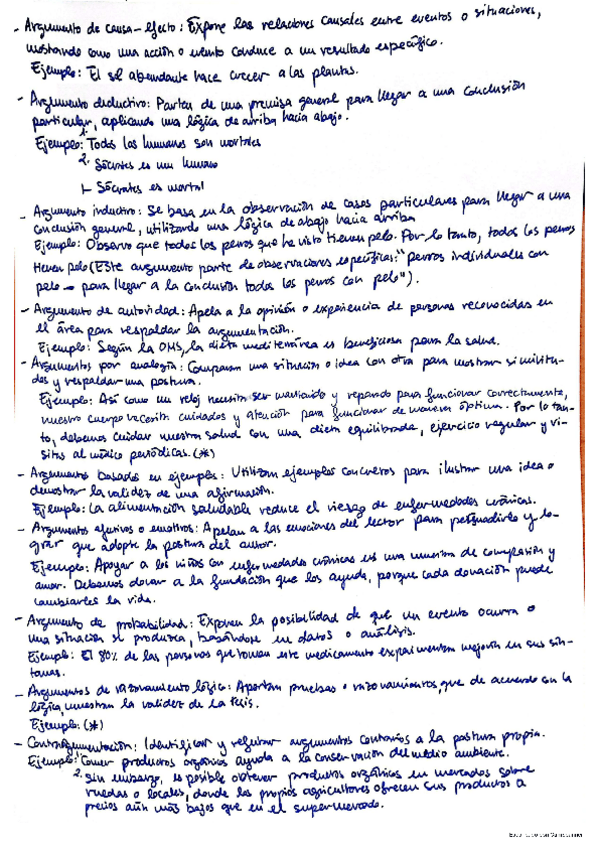 - Argumento de causa-efecto: Expone las relaciones causales entre eventos o situaciones,
mostrando como una acción o evento conduce a un resultado específico.
Ejemplo: El sol abundante hace crecer a las plantas.
- Argumento deductivo: Parten de una premisa general para llegar a una conclusión
particular, aplicando una lógica de arriba hacia abajo.
Ejemplo: 1. Todos los humanos son mortales
2. Sócrates es un humano
Sócrates es mortal
- Argumento inductivo: Se basa en la observación de casos particulares para llegar a una
conclusión general, utilizando una lógica de abajo hacia arriba
Ejemplo: Observo que todos los perros que he visto tienen pelo. Por lo tanto, todos los perros
tienen pelo (Este argumento parte de observaciones específicas: "perros individuales con
pelo → para llegar a la conclusión todos los perros con pelo").
- Argumento de autoridad: Apela a la opinión o experiencia de personas reconocidas en
el área para respaldar la argumentación.
Ejemplo: Según la OMS, la dieta mediterránea es beneficiosa para la salud.
- Argumentos por analogía: Comparan una situación o idea con otra para mostrar similitu-
des y respaldar una postura.
Ejemplo: Así como un reloj necesita ser y reparado para funcionar correctamente,
nuestro cuerpo necesita cuidados y atención para funcionar de manera óptima. Por lo tan-
to, debemos cuidar nuestra salud con una dieta equilibrada, ejercicio regular y vi-
sitas al médico periódicas. (*)
- Argumentos basados en ejemplos: Utilizan ejemplos concretos para ilustrar una idea o
demostrar la validez de una afirmación.
Ejemplo: La alimentación saludable reduce el riesgo de enfermedades crónicas.
- Argumentos afectivos o emotivos: Apelan a las emociones del lector para persuadirlo y lo-
grar que adopte la postura del autor.
Ejemplo: Apoyar a los niños con enfermedades crónicas es una muestra de compasión y
amor. Debemos donar a la fundación que los ayuda, porque cada donación puede
cambiarles la vida.
- Argumento de probabilidad: Exponen la posibilidad de que un evento ocurra o
una situación se produzca, basándose en datos o análisis.
Ejemplo: El 80% de las personas que toman este medicamento experimentan mejoría en sus sín-
tomas.
- Argumentos de razonamiento lógico: Aportan pruebas o razonamientos, que de acuerdo con la
lógica, muestran la validez de la tesis.
Ejemplo: (*)
- Contraargumentación: Identificar y refutar argumentos contrarios a la postura propia.
Ejemplo: 1. Comer productos orgánicos ayuda a la conservación del medio ambiente.
2. Sin embargo, es posible obtener productos orgánicos en mercados sobre
ruedas o locales, donde los propios agricultores ofrecen sus productos a
precios aún más bajos que en el supermercado.